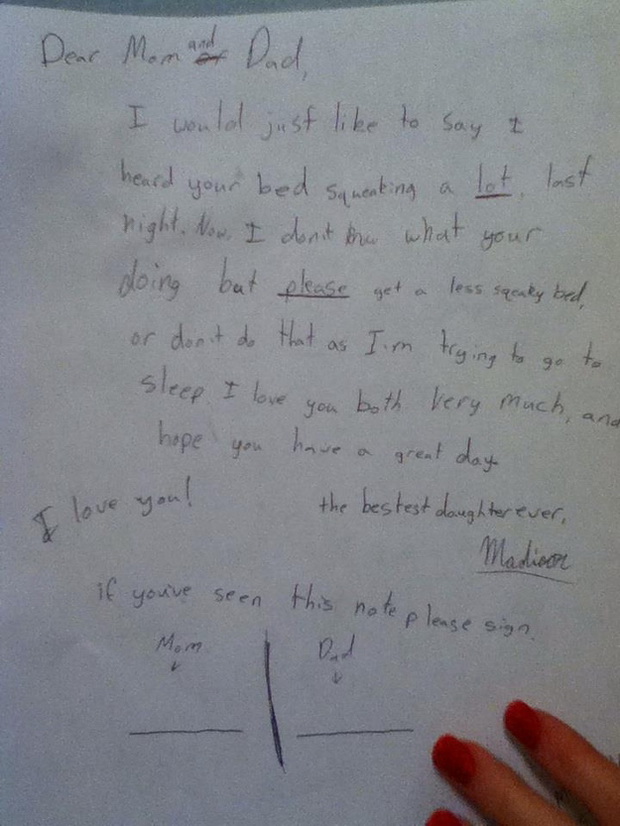 Dear Mom and Dad,
I would just like to say I
heard your bed squeaking a lot, last
night. Now, I don't know what your
doing but please get a less squeaky bed,
or don't do that as I'm trying to go to
sleep. I love you both very much, and
hope you have a great day
I love you!
the bestest daughter ever,
Madison
if you've seen this note please sign.
Mom
Dad